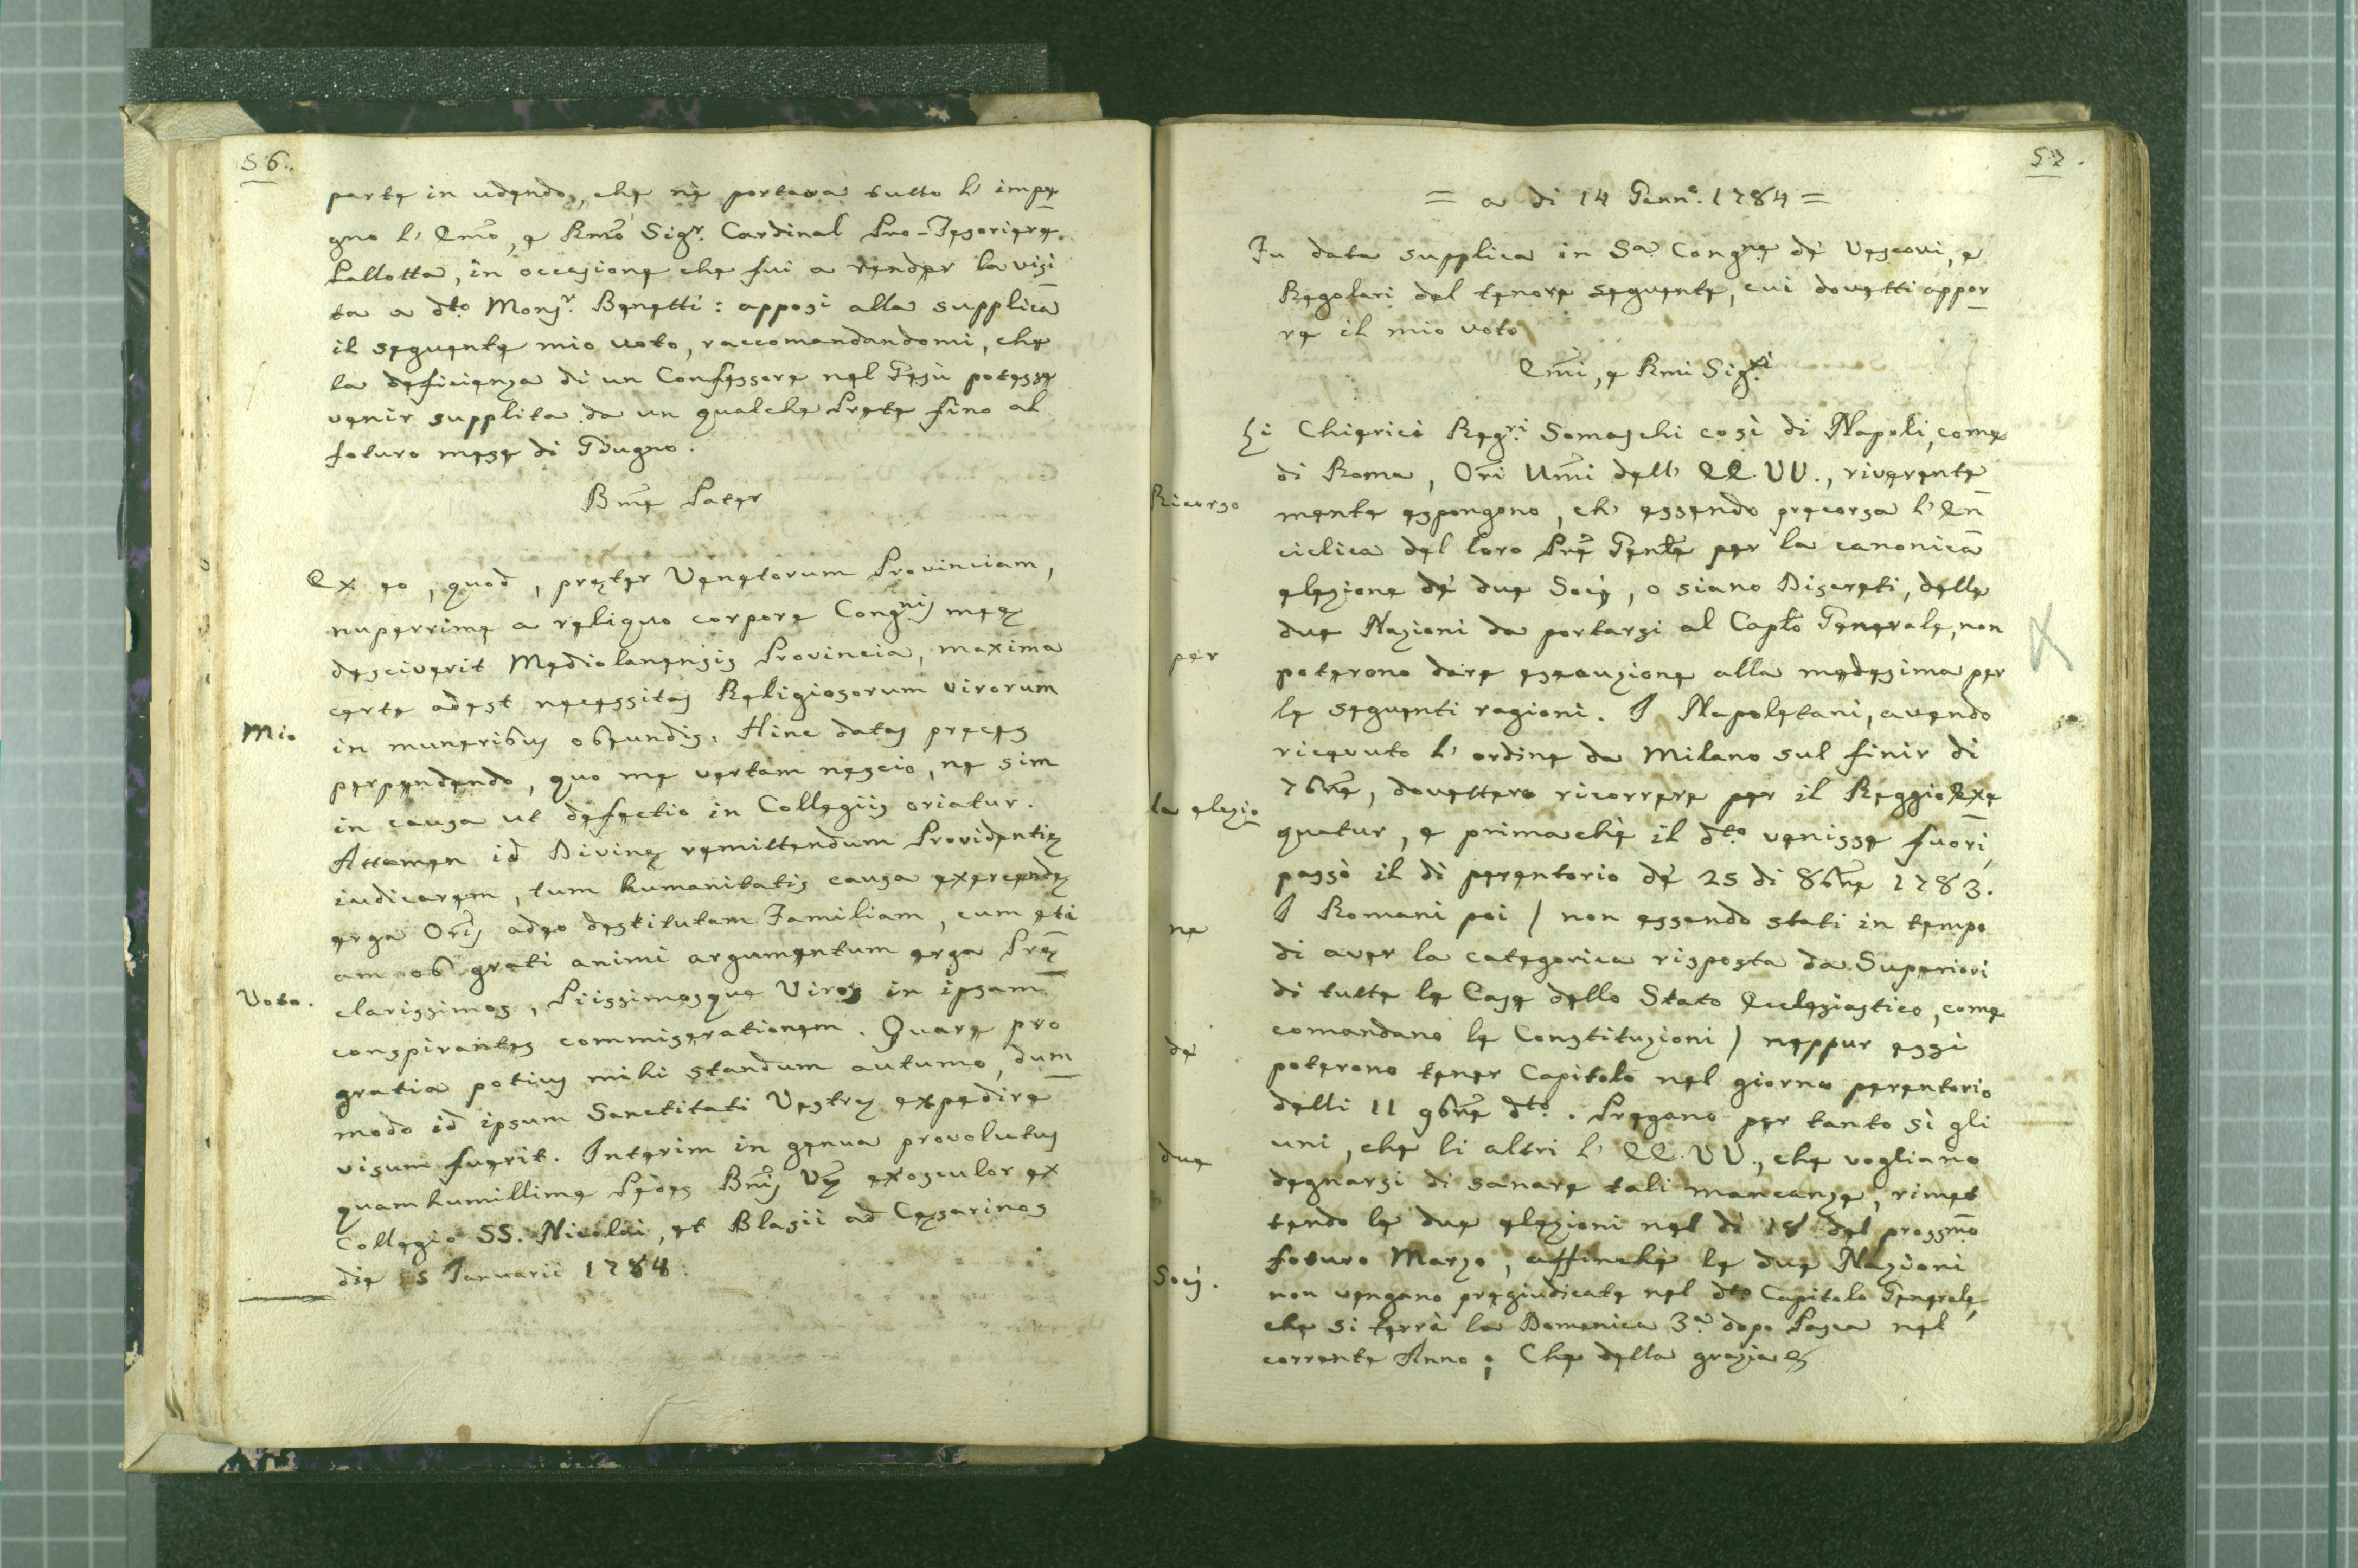 56.
parte in udendo, che nè portava tutto l' impe
gno l' Emo, e Rmo Sigr. Cardinal Pro-Tesoriere
Pallotta, in occasione che fui a render la visi
ta a dto Monsr. Benetti: apposi alla supplica
il seguente mio voto, raccomandandomi, che
la deficienza di un Confessore nel Gesù potesse
venir supplita da un qualche Prete fino al
futuro mese di Giugno.
Bme Pater
Ex eo, quod, pręter Venetorum Provinciam,
nuperrime a reliquo corpore Congnis meę
desciverit Mediolanensis Provincia, maxima
certe adest necessitas Religiosorum virorum
Mio in muneribus obeundis. Hinc datas preces
perpendendo, quo me vertam nescio, ne sim
in causa ut defectio in Collegiis oriatur.
Attamen id Divinę remittendum Providentię
iudicarem, tum humanitatis causa exercendę
erga Oris adeo destitutam Familiam, cum eti
am ob grati animi argumentum erga Pręę
Voto. clarissimos, Piissimosque Viros in ipsam
conspirantes commiserationem. Quare pro
gratia potius mihi standum autumo, dum
modo id ipsum Sanctitati Vestrę expedire
visum fuerit. Interim in genua provolutus
quam humillime Pedes Bnis Vę exosculor ex
Collegio SS. Nicolai, et Blasii ad Cęsarinos
die 5 Januarii 1784.
57.
= a di 14 Genno. 1784 =
Fu data supplica in Sa Congne de' Vescovi, e
Regolari del tenore seguente, cui dovetti appor
re il mio voto
Emi, e Rmi Sigri
Li Chierici Regri Somaschi così di Napoli, come
di Roma, Ori Umi dell' EE. VV., riverente
Ricorso mente espongono, ch' essendo precorsa l' En
ciclica del loro Pre Genle per la canonica
elezione de' due Socij, o siano Discreti, delle
due Nazioni da portarsi al Caplo Generale, non
per poterono dare esecuzione alla medesima per
le seguenti ragioni. I Napoletani, avendo
ricevuto l' ordine da Milano sul finir di
la elezio 7bre, dovettero ricorrere per il Reggio Exe
quatur, e primachè il dto venisse fuori,
passò il di perentorio de' 25 di 8bre 1783.
ne I Romani poi / non essendo stati in tempo
di aver la categorica risposta da Superiori
di tutte le Case dello Stato Ecclesiastico, come
comandano le Constituzioni / neppur essi
de' poterono tener Capitolo nel giorno perentorio
delli 11 9bre dto. Pregano per tanto sì gli
uni, che li altri l' EE. VV., che vogliano
due degnarsi di sanare tali mancanze, rimet
tendo le due elezioni nel dì 18 del prossmo
futuro Marzo, affinchè le due Nazioni
Socij. non vengano pregiudicate nel dto Capitolo Generale,
che si terrà la Domenica 3a dopo Pasca nel
corrente Anno; Che della grazia &